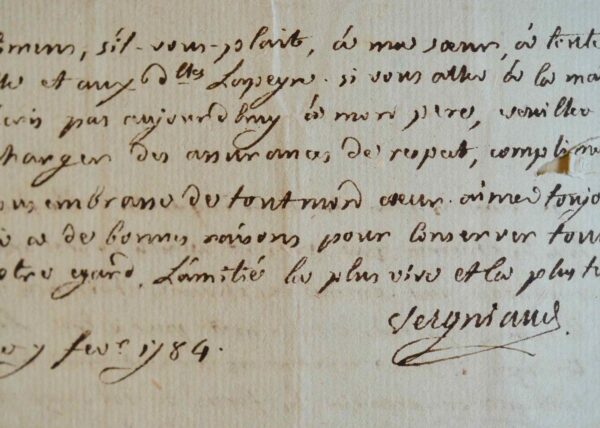 imens, s'il-vous-plait, à ma sœur, à tante
et aux d.lles Lapeyre. si vous allez à la mai
cris pas aujourd'huy à mon pere, veuillez
charger des assurances de respect, complimen
ous embrasse de tout mon cœur. aimez toujo
a de bonnes raisons pour conserver tou
otre egard, L'amitié la plus vive et la plus te
Vergniaud
7 fevr 1784.